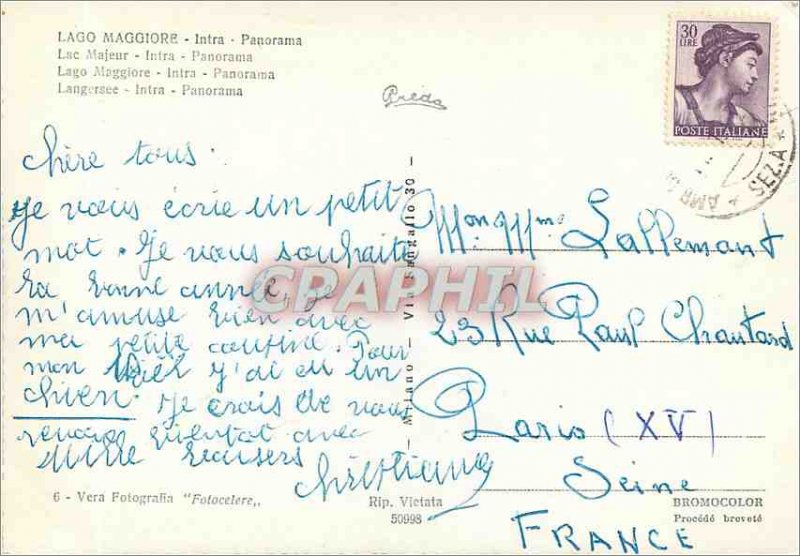 LAGO MAGGIORE - Intra - Panorama
Lac Majeur - Intra - Panorama
Lago Maggiore - Intra - Panorama
Langersee - Intra - Panorama
30 LIRE
POSTE ITALIANE
chère tous.
je vous écrie un petit
mot. Je vous souhaite
la bonne année, je
m'amuse bien avec
ma petite cousine. Pour
mon Noël j'ai eu un
chien. Je crois de vous
revoir bientot avec
Mille baisers
Christiane
Mon. Mme Lallemant
23 Rue Paul Chautard
Paris (XV)
Seine
FRANCE
Milano - Via Sangallo 30 -
CPAPHIL
6 - Vera Fotografia "Fotocelere„
Rip. Vietata
50998
BROMOCOLOR
Procédé breveté